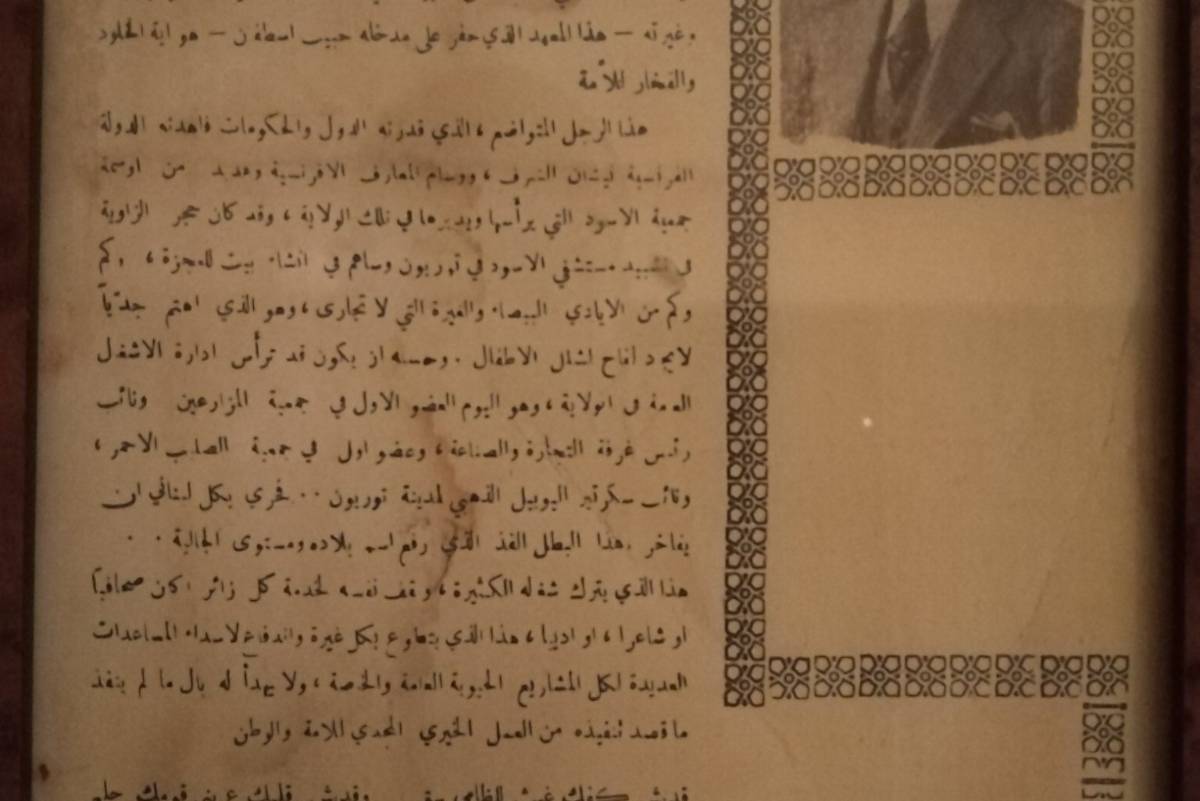 وغيرته – هذا المعهد الذي حفر على مدخله حبيب اسطفان – هو اية الخلود
والفخار للأمة
هذا الرجل المتواضع ، الذي قدرته الدول والحكومات فاهدته الدولة
الفرنسية نيشان الشرف ، ووسام المعارف الافرنسية وعديد من اوسمة
جمعية الاسود التي يرأسها ويديرها في تلك الولاية ، وقد كان حجر الزاوية
في تشييد مستشفى الاسود في توريون وساهم في انشاء بيت للعجزة ، وكم
وكم من الايادي البيضاء والغيرة التي لا تجارى ، وهو الذي اهتم جدّياً
لايجاد لقاح لشلل الاطفال . وحسبه ان يكون قد ترأس ادارة الاشغال
العامة في الولاية ، وهو اليوم العضو الاول في جمعية المزارعين ونائب
رئيس غرفة التجارة والصناعة ، وعضو اول في جمعية الصليب الاحمر ،
ونائب سكرتير اليوبيل الذهبي لمدينة توريون . . فحري بكل لبناني ان
يفاخر بهذا البطل الفذ الذي رفع اسم بلاده ومستوى الجالية . .
هذا الذي يترك شغله الكثيرة ، ويقف نفسه لخدمة كل زائر اكان صحافياً
او شاعرا ، او اديبا ، هذا الذي يتطوع بكل غيرة واندفاع لاسداء المساعدات
العديدة لكل المشاريع الحيوية العامة والخاصة ، ولا يهدأ له بال ما لم ينفذ
ما قصد تنفيذه من العمل الخيري المجدي للامة والوطن